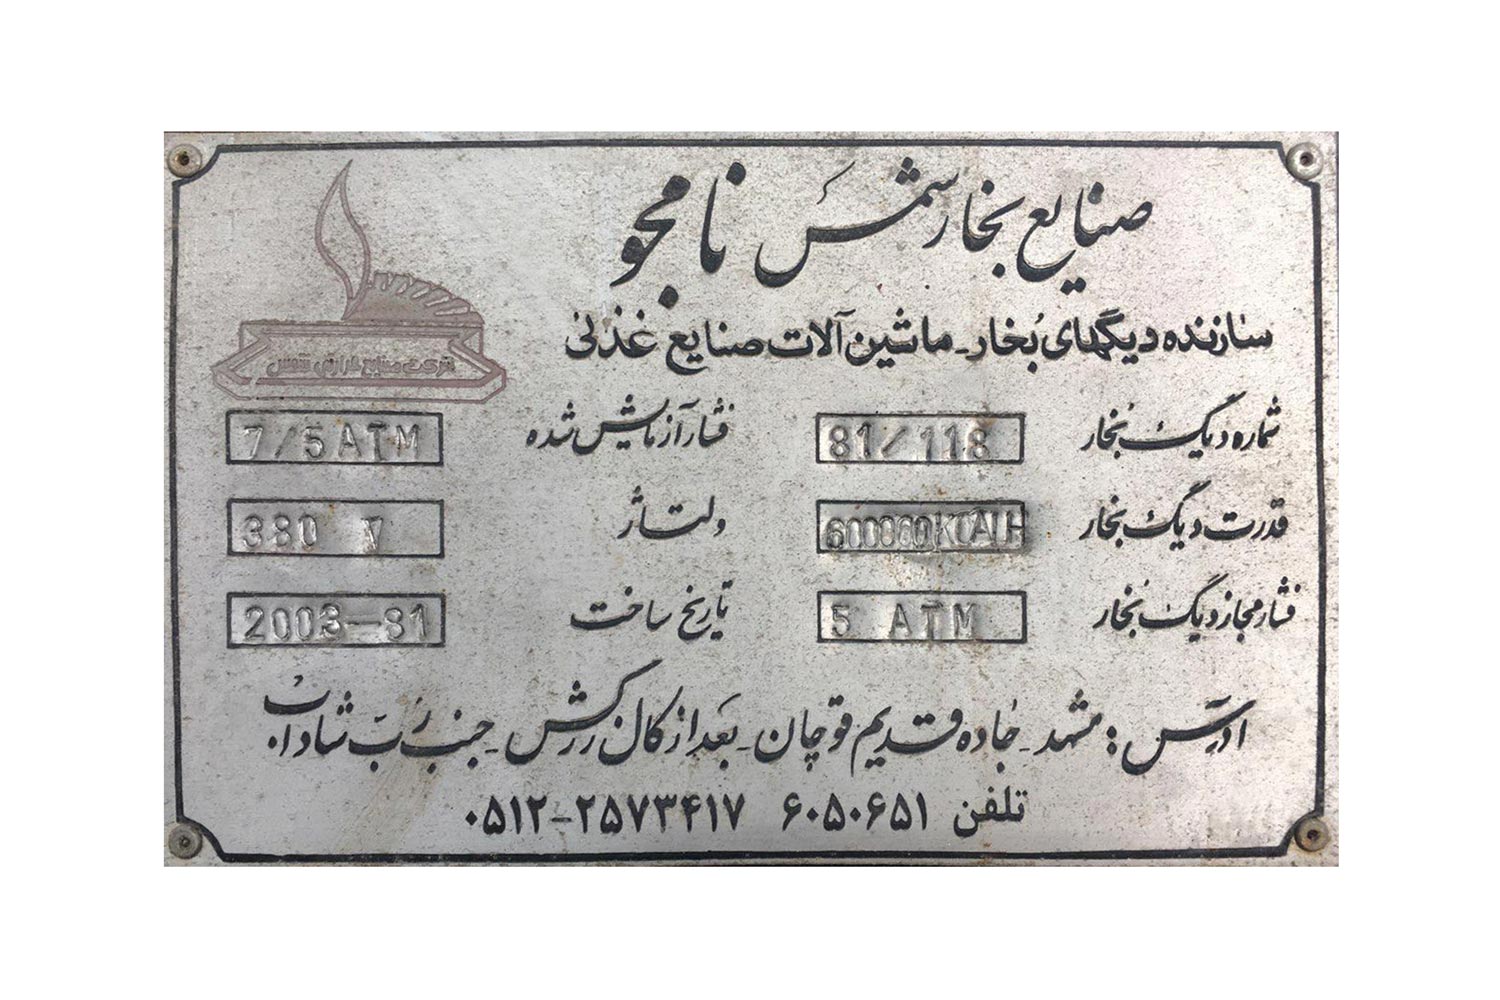 صنایع بخار شمس نامجو
سازنده دیگهای بخار - ماشین آلات صنایع غذئی
شماره دیگ بخار 81/118 فشار آزمایش شده 7/5 ATM
قدرت دیگ بخار 600000KCAL/H ولتاژ 380 V
فشار مجاز دیگ بخار 5 ATM تاریخ ساخت 2003-81
ادرس : مشهد - جاده قدیم قوچان - بعد از کال زرکش - جنب رب شاداب
تلفن ۶۰۵۰۶۵۱ ۰۵۱۲-۲۵۷۳۴۱۷